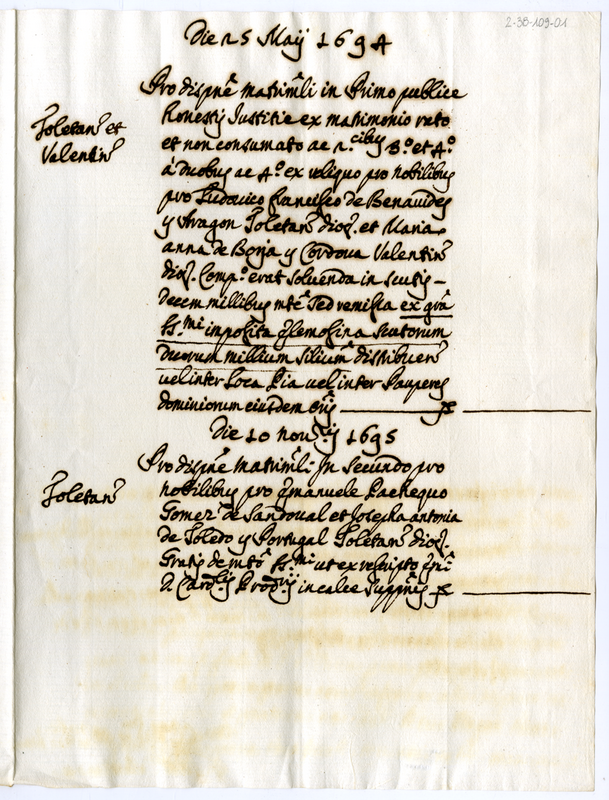 2-38-109-01
Die 25 Maij 1694
Toletanẽ et
Valentinẽ
Pro dispnẽ matrimlĩ in Primo publice
Honestis Justitie ex matrimonio rato
et non consumato ac 2.cibus 3.º et 4.º
á Duobus ac 4.º ex reliquo pro nobilibus
pro Ludovico francisco de Benauides
y Aragon Toletanẽ dioȝ. et Maria
anna de Borja y Cordova Valentinẽ
dioȝ. Comp.º erat soluenda in scutis –
decem millibus mtẽ sed remissa ex grã
ss.mi imposita elemosina scutorum
Duorum millium similiũ distribuenẽ
uel inter Loca Pia uel inter Pauperes
dominiorum eiusdem Orĩs
Die 10 nouȝis 1695
Toletanẽ
Pro dispnẽ matrimlĩ In secundo pro
nobilibus pro Emanuele Pachequo
Gomeȝ de Sandoual et Josepha antonia
de Toledo y Portugal Toletanẽ dioȝ.
Gratis de mtõ ss.mi ut ex rescripto Emĩ
D. Cardlis Prodrij in calce Suppnis